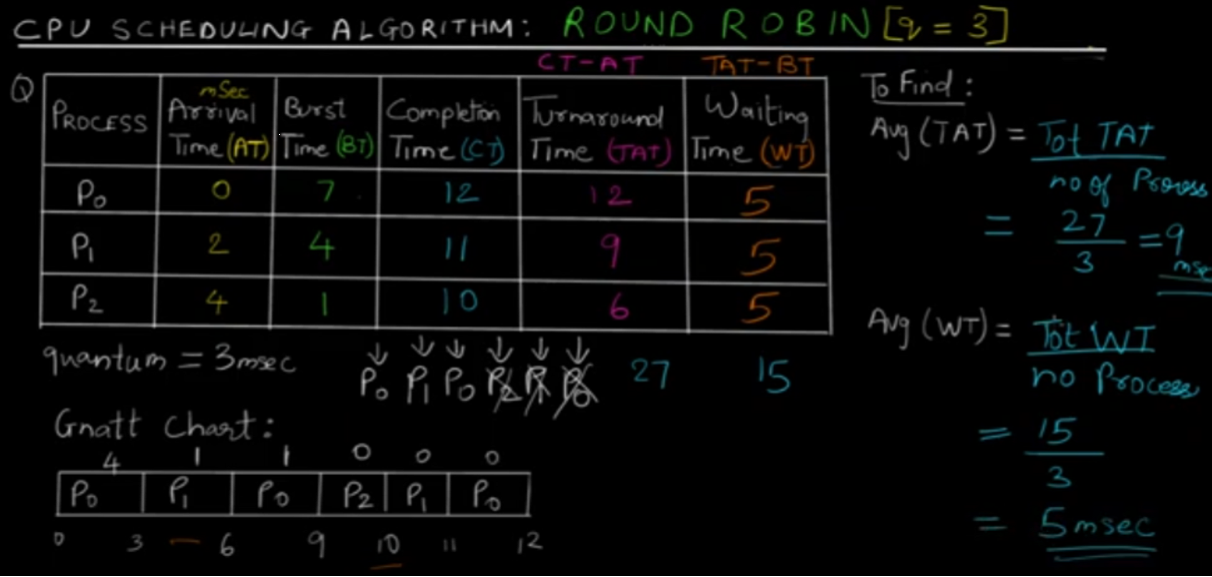 CPU SCHEDULING ALGORITHM: ROUND ROBIN [q = 3]
CT-AT TAT-BT
Q
PROCESS mSec Arrival Time (AT) Burst Time (BT) Completion Time (CT) Turnaround Time (TAT) Waiting Time (WT)
P0 0 7 12 12 5
P1 2 4 11 9 5
P2 4 1 10 6 5
27 15
quantum = 3msec
P0 P1 P0 P2 P1 P0
Gnatt Chart:
4 1 1 0 0 0
P0 P1 P0 P2 P1 P0
0 3 6 9 10 11 12
To Find:
Avg (TAT) = Tot TAT
no of Process
= 27
3
= 9 msec
Avg (WT) = Tot WT
no Process
= 15
3
= 5msec